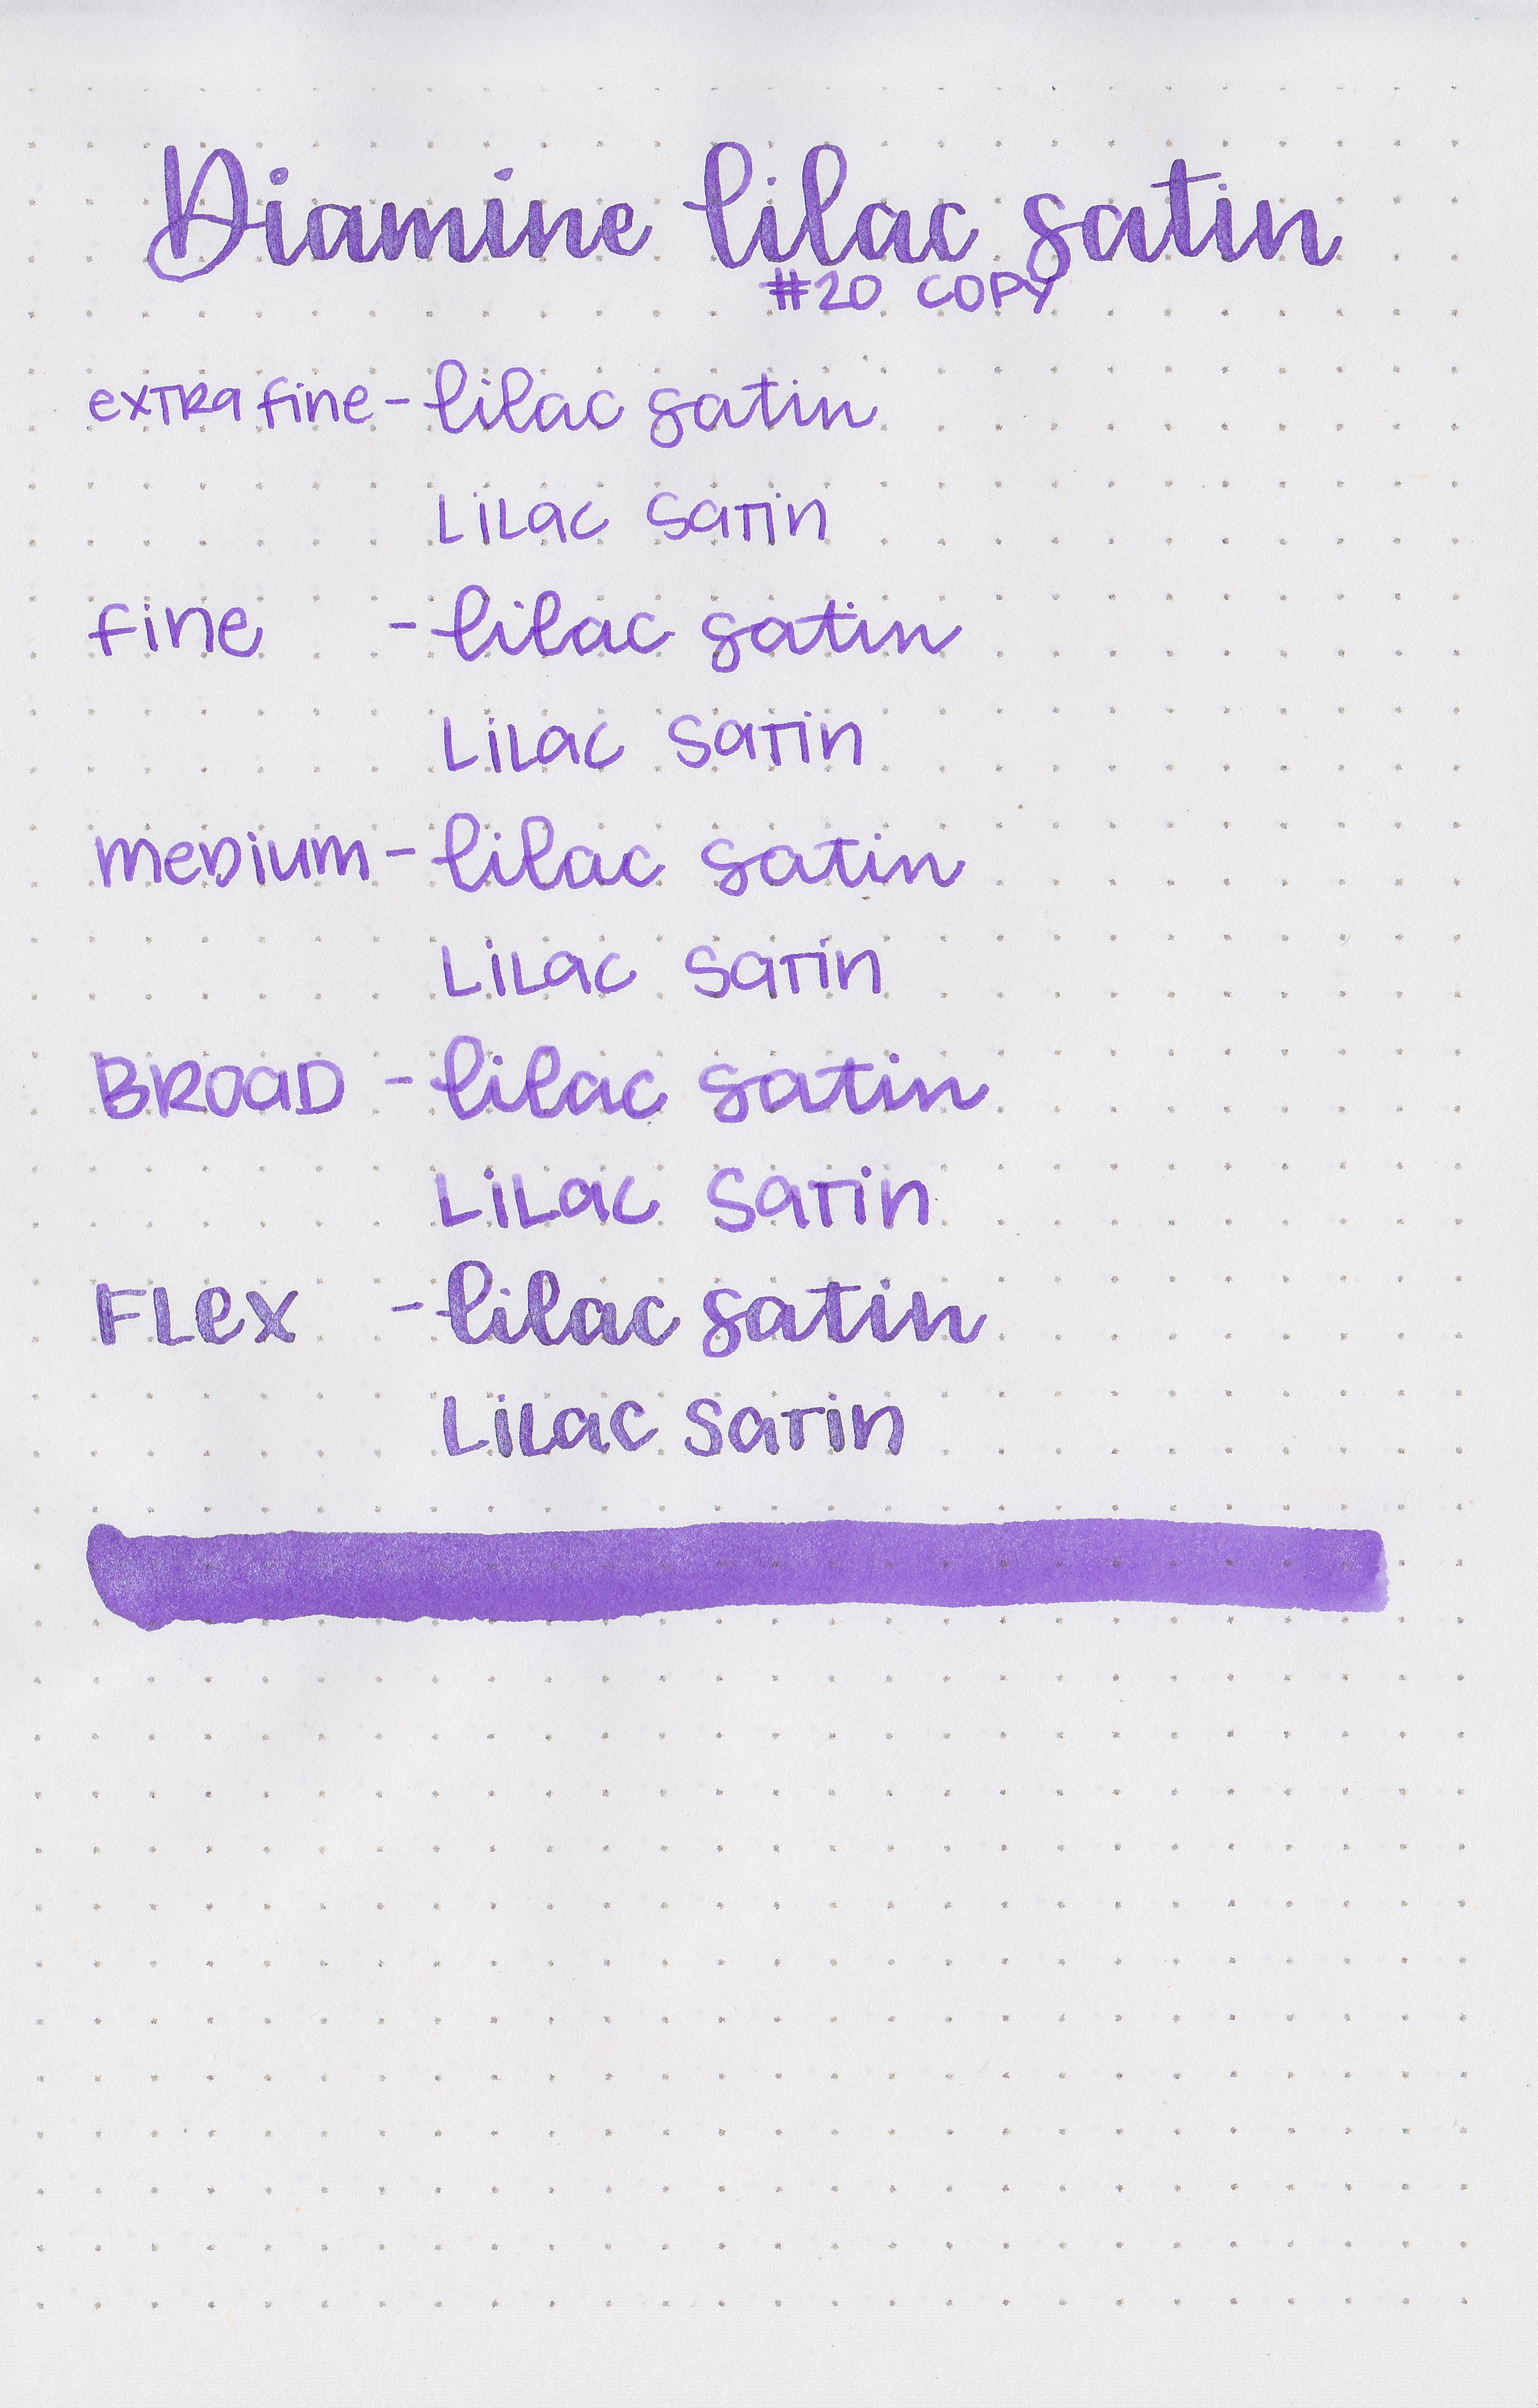 Diamine lilac satin
#20 COPY
extra fine - lilac satin
Lilac Satin
fine - lilac satin
Lilac Satin
meDium - lilac satin
Lilac Satin
BROaD - lilac satin
Lilac Satin
FLex - lilac satin
Lilac Satin